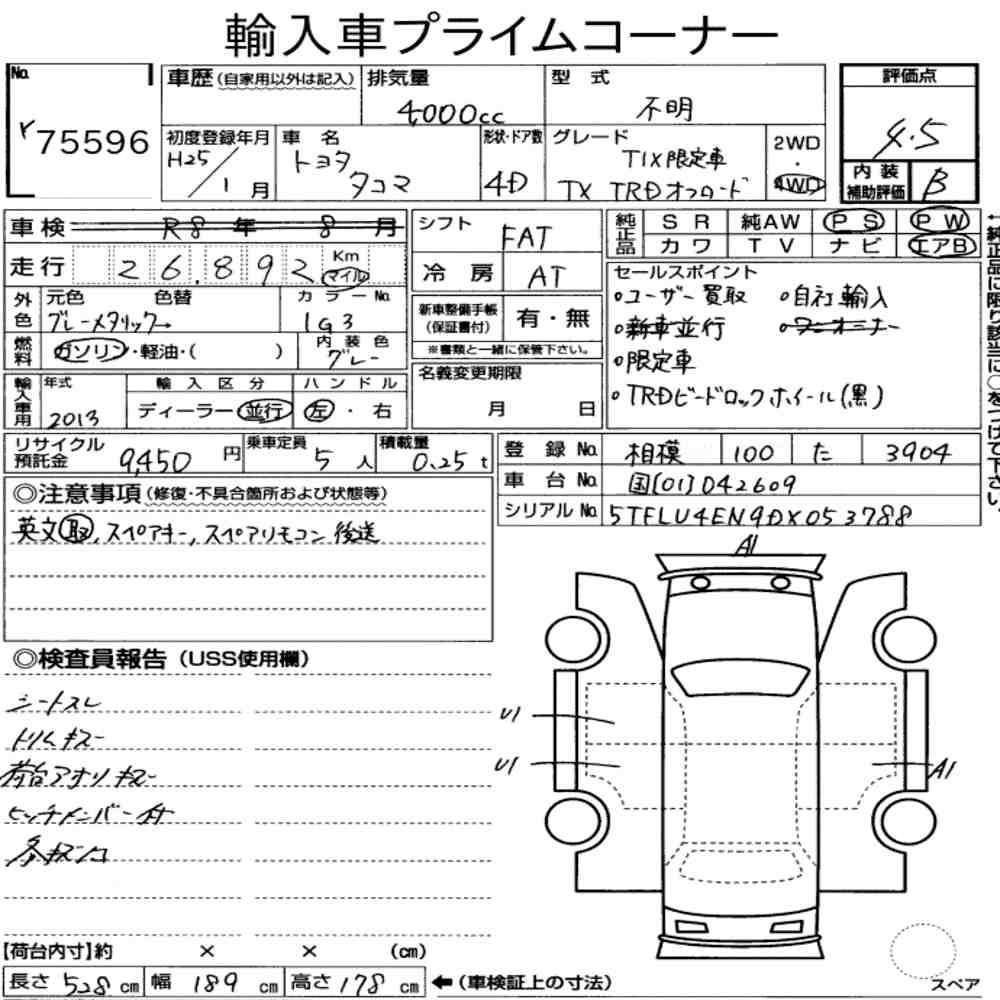 輸入車プライムコーナー
No.
75596
車歴(自家用以外は記入)
排気量
4000cc
型 式
不明
評価点
4.5
初度登録年月
H25/1月
車 名
トヨタ
タコマ
形状・ドア数
4D
グレード
TIX限定車
TX TRDオフロード
2WD
・
4WD
内 装
補助評価
B
車検 R8年 8月
走行 26.892 Km
マイル
シフト FAT
冷 房 AT
純正品
SR 純AW PS PW
カワ TV ナビ エアB
←純正品に限り該当に○をつけて下さい。
外色
元色 色替 カラーNo.
グレーメタリック→ 1G3
燃料
ガソリン・軽油・( )
内装色
グレー
新車整備手帳
(保証書付) 有・無
※書類と一緒に保管下さい。
セールスポイント
○ユーザー買取 ○自社輸入
○新車並行 ○ワンオーナー
○限定車
○TRDビードロックホイール(黒)
輸入車用
年式 輸入区分 ハンドル
2013 ディーラー・並行 左・右
名義変更期限
月 日
リサイクル
預託金 9,450円
乗車定員
5人
積載量
0.25t
登 録 No. 相模 100 た 3904
車 台 No. 国[01]042609
シリアルNo. 5TFLU4EN9DX053788
◎注意事項(修復・不具合箇所および状態等)
英文取,スペアキー,スペアリモコン後送
◎検査員報告(USS使用欄)
シートスレ
トリムキズ
荷台アオリキズ
ヒッチメンバー付
A1
U1
U1
A1
【荷台内寸】約 × × (cm)
長さ 528cm 幅 189cm 高さ 178cm ←(車検証上の寸法)
スペア